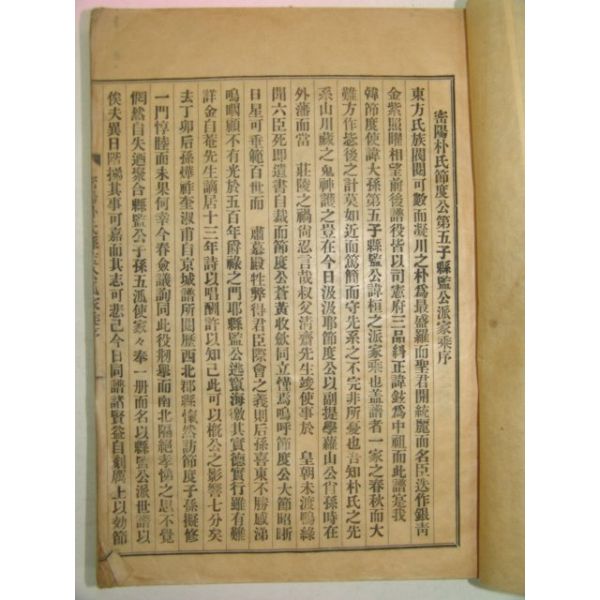 密陽朴氏節度公第五子縣監公派家乘序
東方氏族閥閱可數而凝川之朴爲最盛羅而聖君開統麗而名臣迭作銀靑
金紫照曜相望前後譜役皆以司憲府三品糾正諱鉉爲中祖而此譜寔我
韓節度使諱大孫第五子縣監公諱桓之派家乘也盖譜者一家之春秋而大
難方作恙後之計莫如近而篤簡而守先系之不完非所憂也吾知朴氏之先
系山川藏之鬼神護之豈在今日汲汲耶節度公以副提學蘿山公肖孫時在
外藩而當 莊陵之禍尙忍言哉叔父淸齋先生竣使事於 皇朝未渡鴨綠
聞六臣死卽遺書自裁而節度公蒼黃收斂同立慬焉嗚呼節度公大節昭晣
日星可垂範百世而 肅慕殿牲幣得君臣際會之義則后孫喜東不勝感涕
嗚咽顧不有光於五百年爵祿之門耶縣監公逃竄海徼其實德實行雖有難
詳金自菴先生謫居十三年詩以唱酬許以知己此可以槪公之影響七分矣
去丁卯后孫燁祚奎淑甫自京城譜所閱歷西北郡縣惻然訪節度子孫擬修
一門惇睦而未果何幸今春僉議詢同此役剏擧而南北隔絶孝悌之思不覺
惘然自失迺聚合縣監公子孫五派使家々奉一册而名以縣監公派世譜以
俟夫異日階梯其事可嘉而其志可悲已今日同譜諸賢益自刻勵上以効節